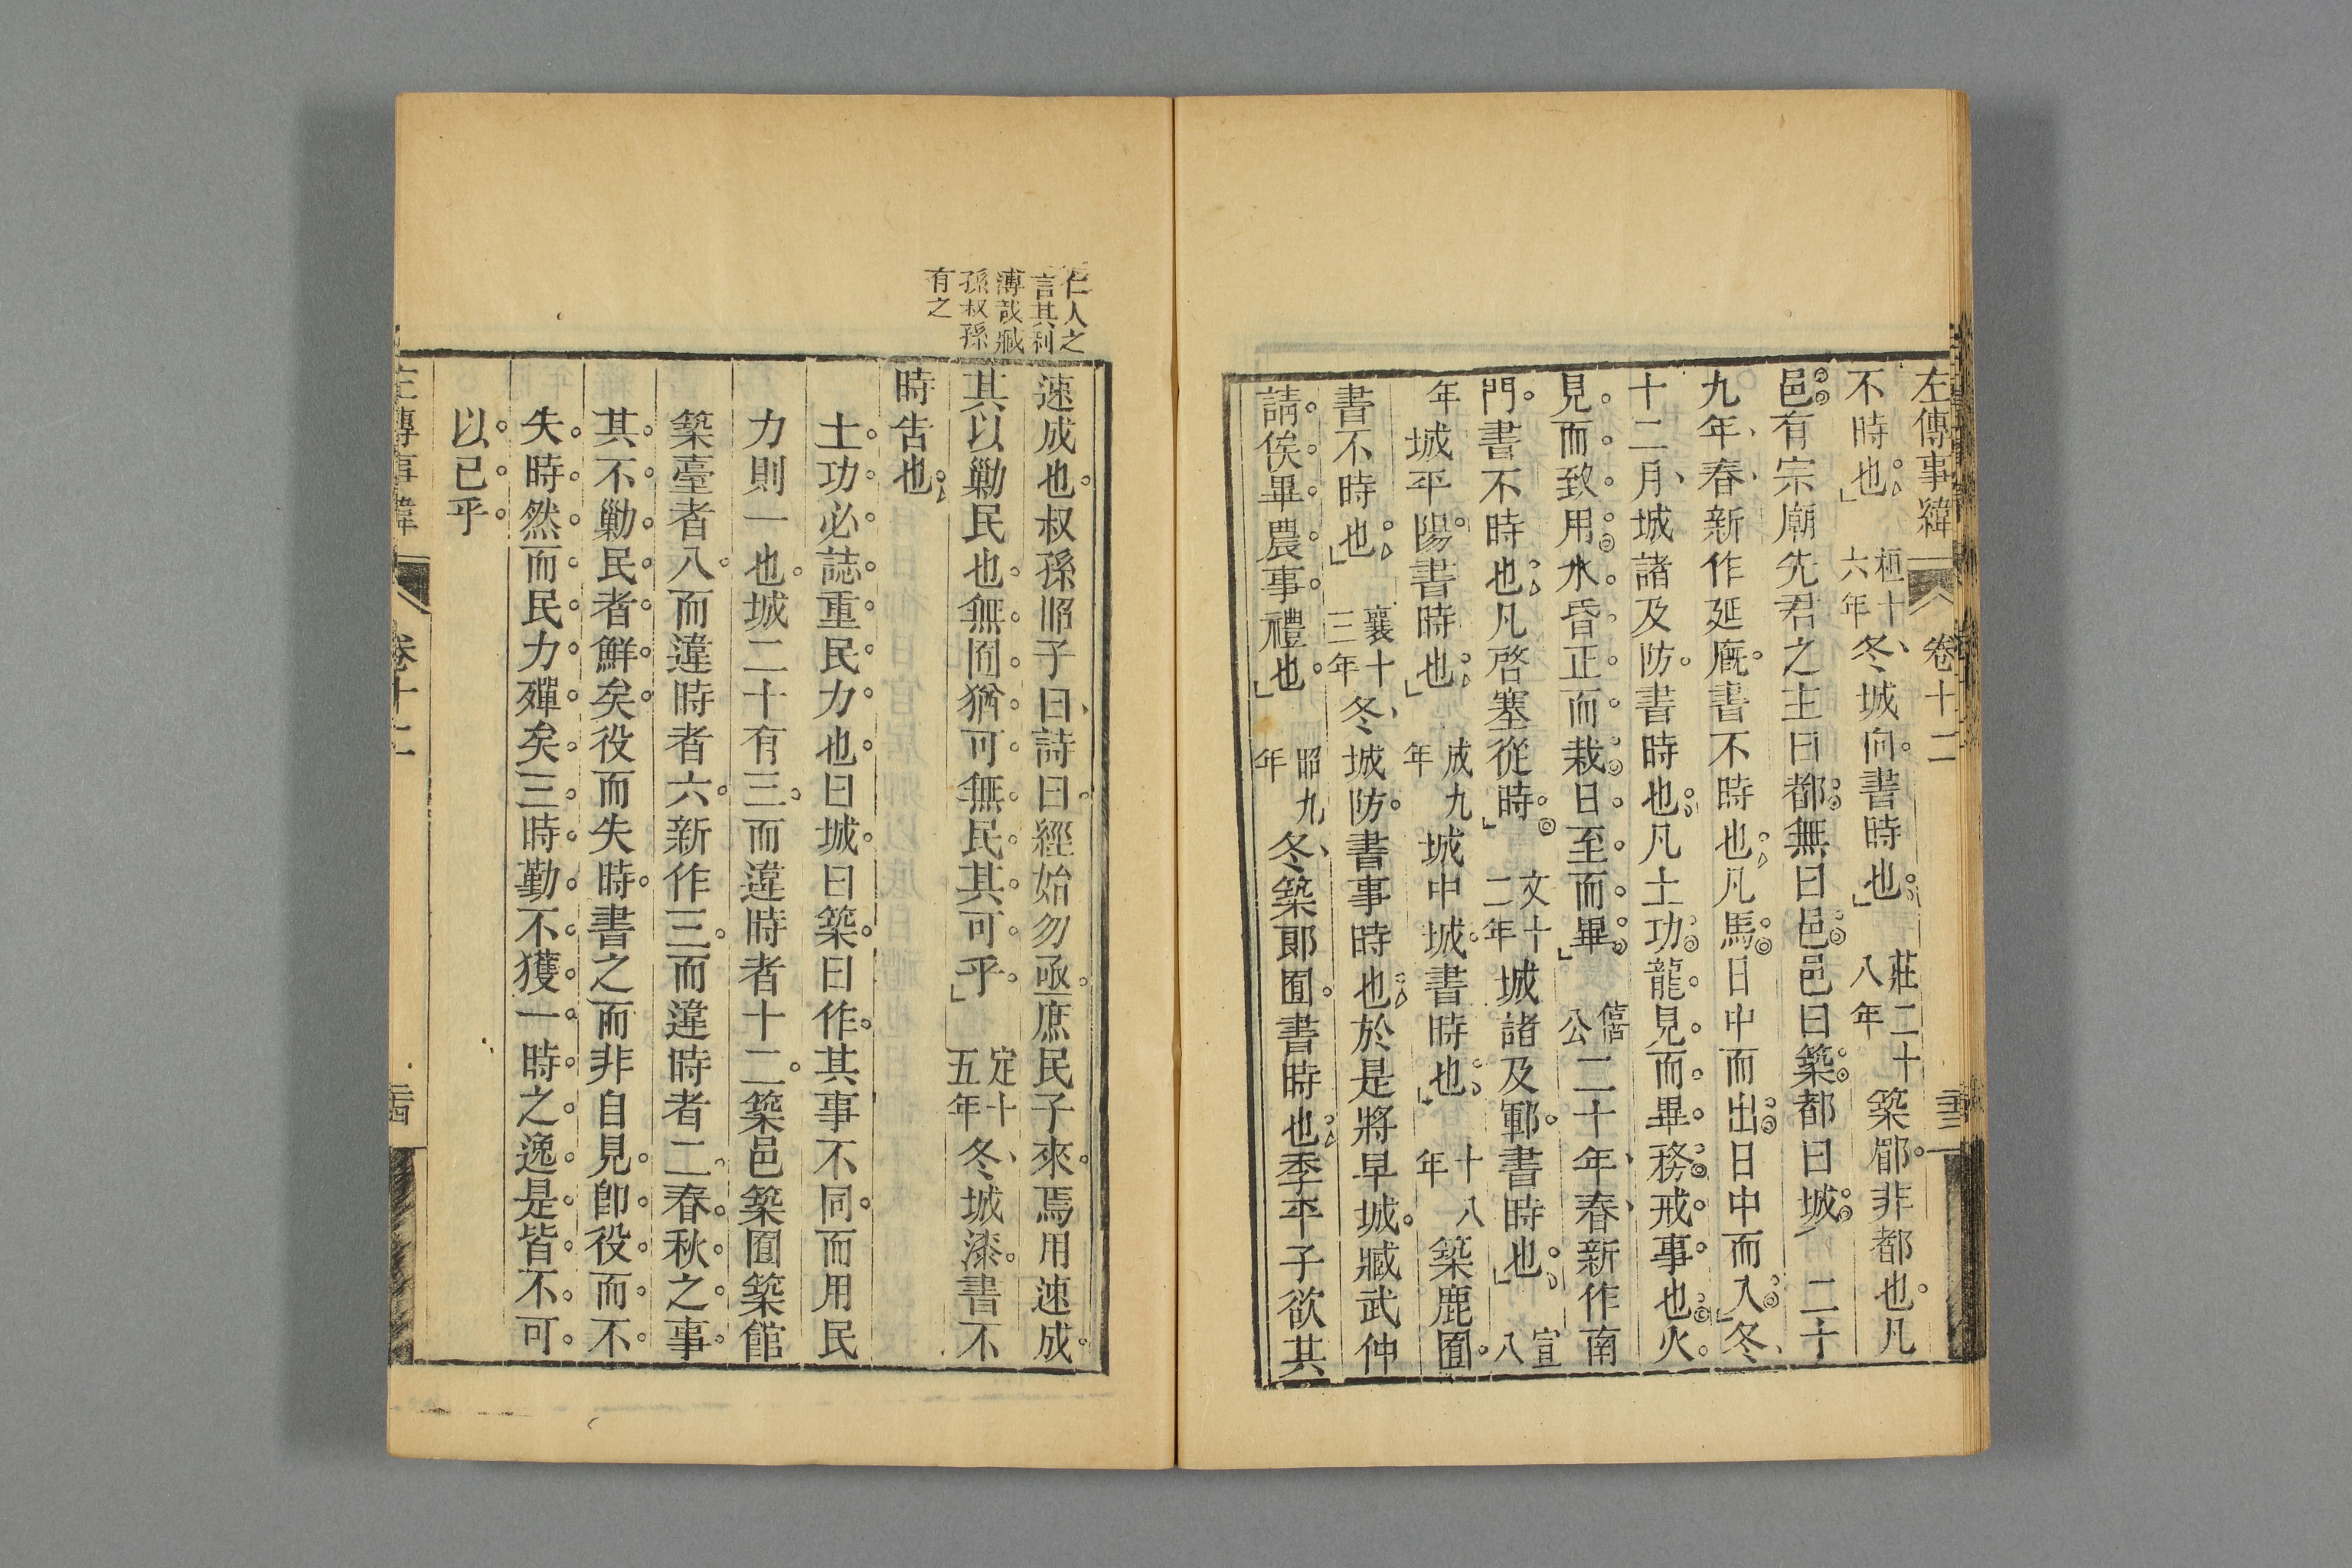 左傳事緯 卷十二
不時也桓十六年冬城向書時也莊二十八年築郿非都也凡
邑有宗廟先君之主曰都無曰邑邑曰築都曰城二十
九年春新作延廐書不時也凡馬日中而出日中而入冬
十二月城諸及防書時也凡土功龍見而畢務戒事也火
見而致用水昏正而栽日至而畢僖公二十年春新作南
門書不時也凡啓塞從時文十二年城諸及鄆書時也宣八
年城平陽書時也成九年城中城書時也十八年築鹿囿
書不時也襄十三年冬城防書事時也於是將早城臧武仲
請俟畢農事禮也昭九年冬築郎囿書時也季平子欲其
仁人之
言其利
溥哉臧
孫叔孫
有之
速成也叔孫昭子曰詩曰經始勿亟庶民子來焉用速成
其以勦民也無囿猶可無民其可乎定十五年冬城漆書不
時告也
土功必誌重民力也曰城曰築曰作其事不同而用民
力則一也城二十有三而違時者十二築邑築囿築館
築臺者八而違時者六新作三而違時者二春秋之事
其不勦民者鮮矣役而失時書之而非自見卽役而不
失時然而民力殫矣三時勤不獲一時之逸是皆不可
以已乎
左傳事緯 卷十二